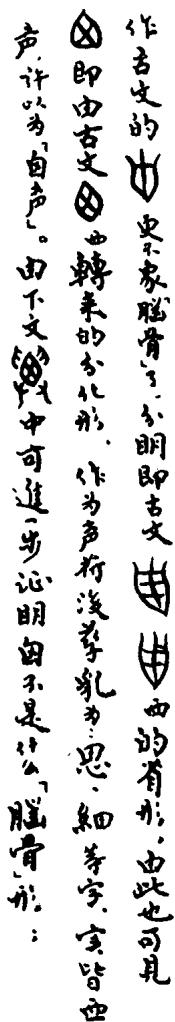 作古文的更不象「腦骨」了，分明即古文西的省形，由此也可見
即由古文西轉来的分化形，作为声符後孳乳为：思、細等字，实皆西
声，許以为「囟声」。由下文中可進一步证明囟不是什么「腦骨」形。：